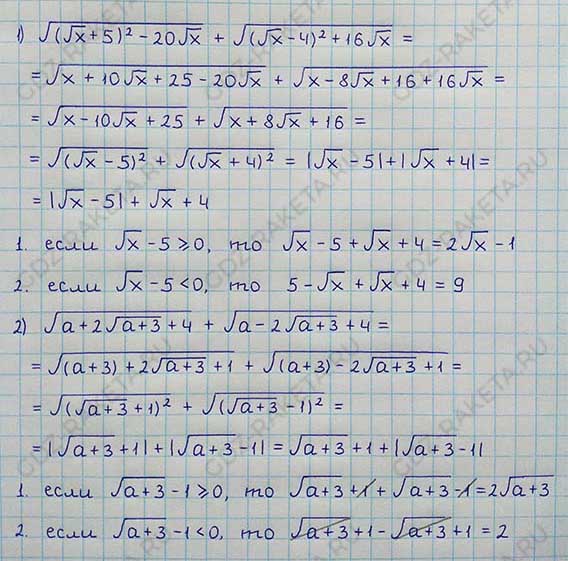 1) √((√x+5)² - 20√x) + √((√x-4)² + 16√x) =
= √(x + 10√x + 25 - 20√x) + √(x - 8√x + 16 + 16√x) =
= √(x - 10√x + 25) + √(x + 8√x + 16) =
= √((√x - 5)²) + √((√x + 4)²) = |√x - 5| + |√x + 4| =
= |√x - 5| + √x + 4
1. если √x - 5 ≥ 0, то √x - 5 + √x + 4 = 2√x - 1
2. если √x - 5 < 0, то 5 - √x + √x + 4 = 9
2) √(a + 2√(a+3) + 4) + √(a - 2√(a+3) + 4) =
= √((a+3) + 2√(a+3) + 1) + √((a+3) - 2√(a+3) + 1) =
= √((√(a+3) + 1)²) + √((√(a+3) - 1)²) =
= |√(a+3) + 1| + |√(a+3) - 1| = √(a+3) + 1 + |√(a+3) - 1|
1. если √(a+3) - 1 ≥ 0, то √(a+3) + 1 + √(a+3) - 1 = 2√(a+3)
2. если √(a+3) - 1 < 0, то √(a+3) + 1 - √(a+3) + 1 = 2
GDZ-RAKETA.RU